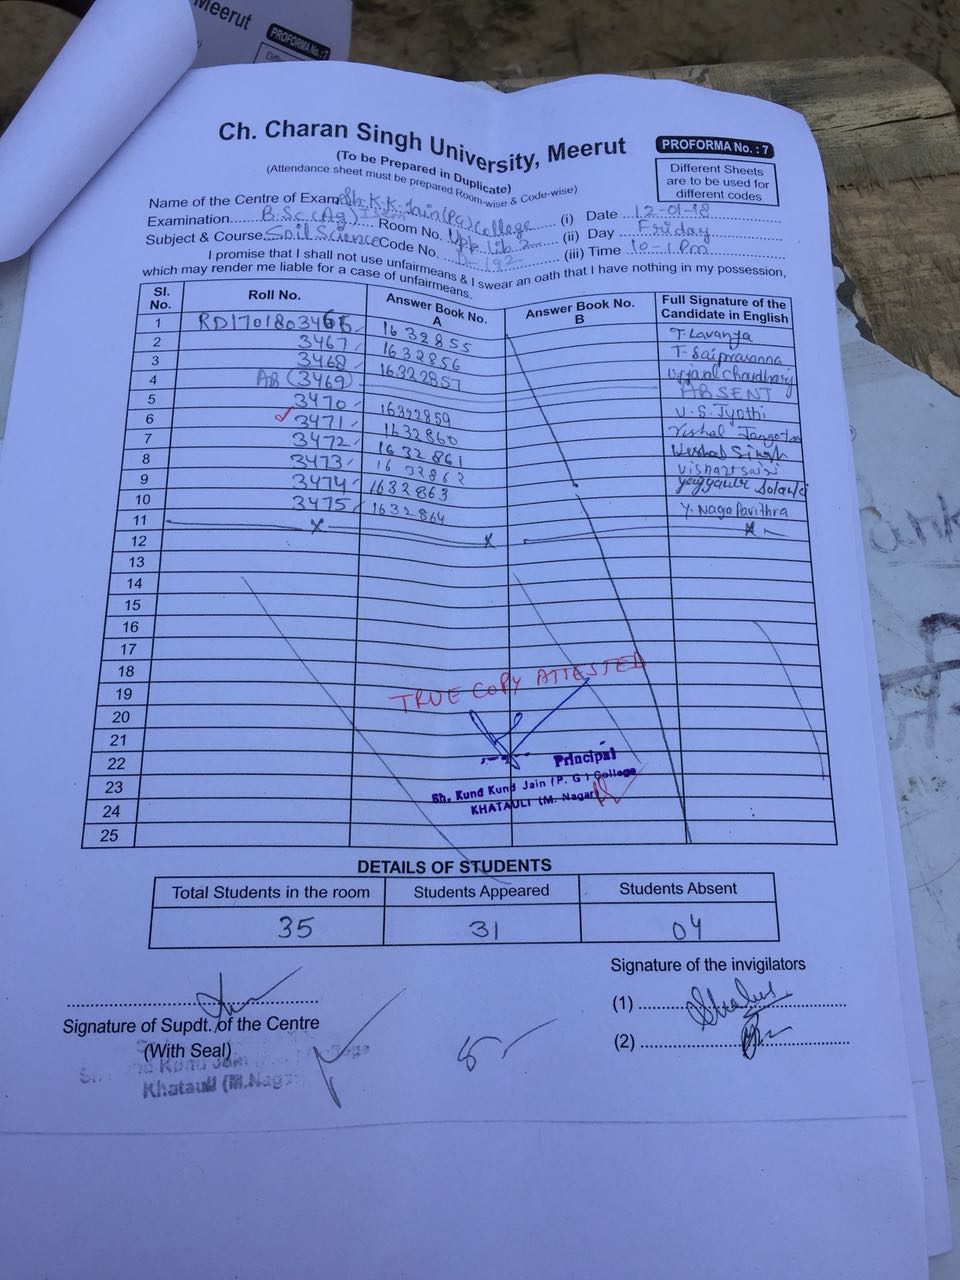 Meerut
PROFORMA No. : 7
Ch. Charan Singh University, Meerut
PROFORMA No. : 7
(To be Prepared in Duplicate)
(Attendance sheet must be prepared Room-wise & Code-wise)
Different Sheets
are to be used for
different codes
Name of the Centre of Exam Sh. K.K. Jain (PG) College (i) Date 12-01-18
Examination B.Sc (Ag) I sem Room No. Upp. Lib 2 (ii) Day Friday
Subject & Course Soil Science Code No. A-192 (iii) Time 10-1 Pm
I promise that I shall not use unfairmeans & I swear an oath that I have nothing in my possession,
which may render me liable for a case of unfairmeans.
Sl. No. Roll No. Answer Book No. A Answer Book No. B Full Signature of the Candidate in English
1 RD1701803466 1632855 T. Lavanya
2 3467 1632856 T. Saiprasanna
3 3468 16322857 Ujjanl chaudhary
4 AB (3469) ABSENT
5 3470 16322859 U.S. Jyothi
6 3471 1632860 Vishal
7 3472 1632861 Singh
8 3473 1632862
9 3474 1632863 Solanki
10 3475 1632864 Y. Naga Pavithra
11
12
13
14
15
16
17
18
19
TRUE COPY ATTESTED
20
21
22
Principal
23
Sh. Kund Kund Jain (P. G ) College
24
KHATAULI (M. Nagar)
25
DETAILS OF STUDENTS
Total Students in the room Students Appeared Students Absent
35 31 04
Signature of the invigilators
(1)
Signature of Supdt. of the Centre
(2)
(With Seal)
Kund Jain
Khatauli (M.Nagar